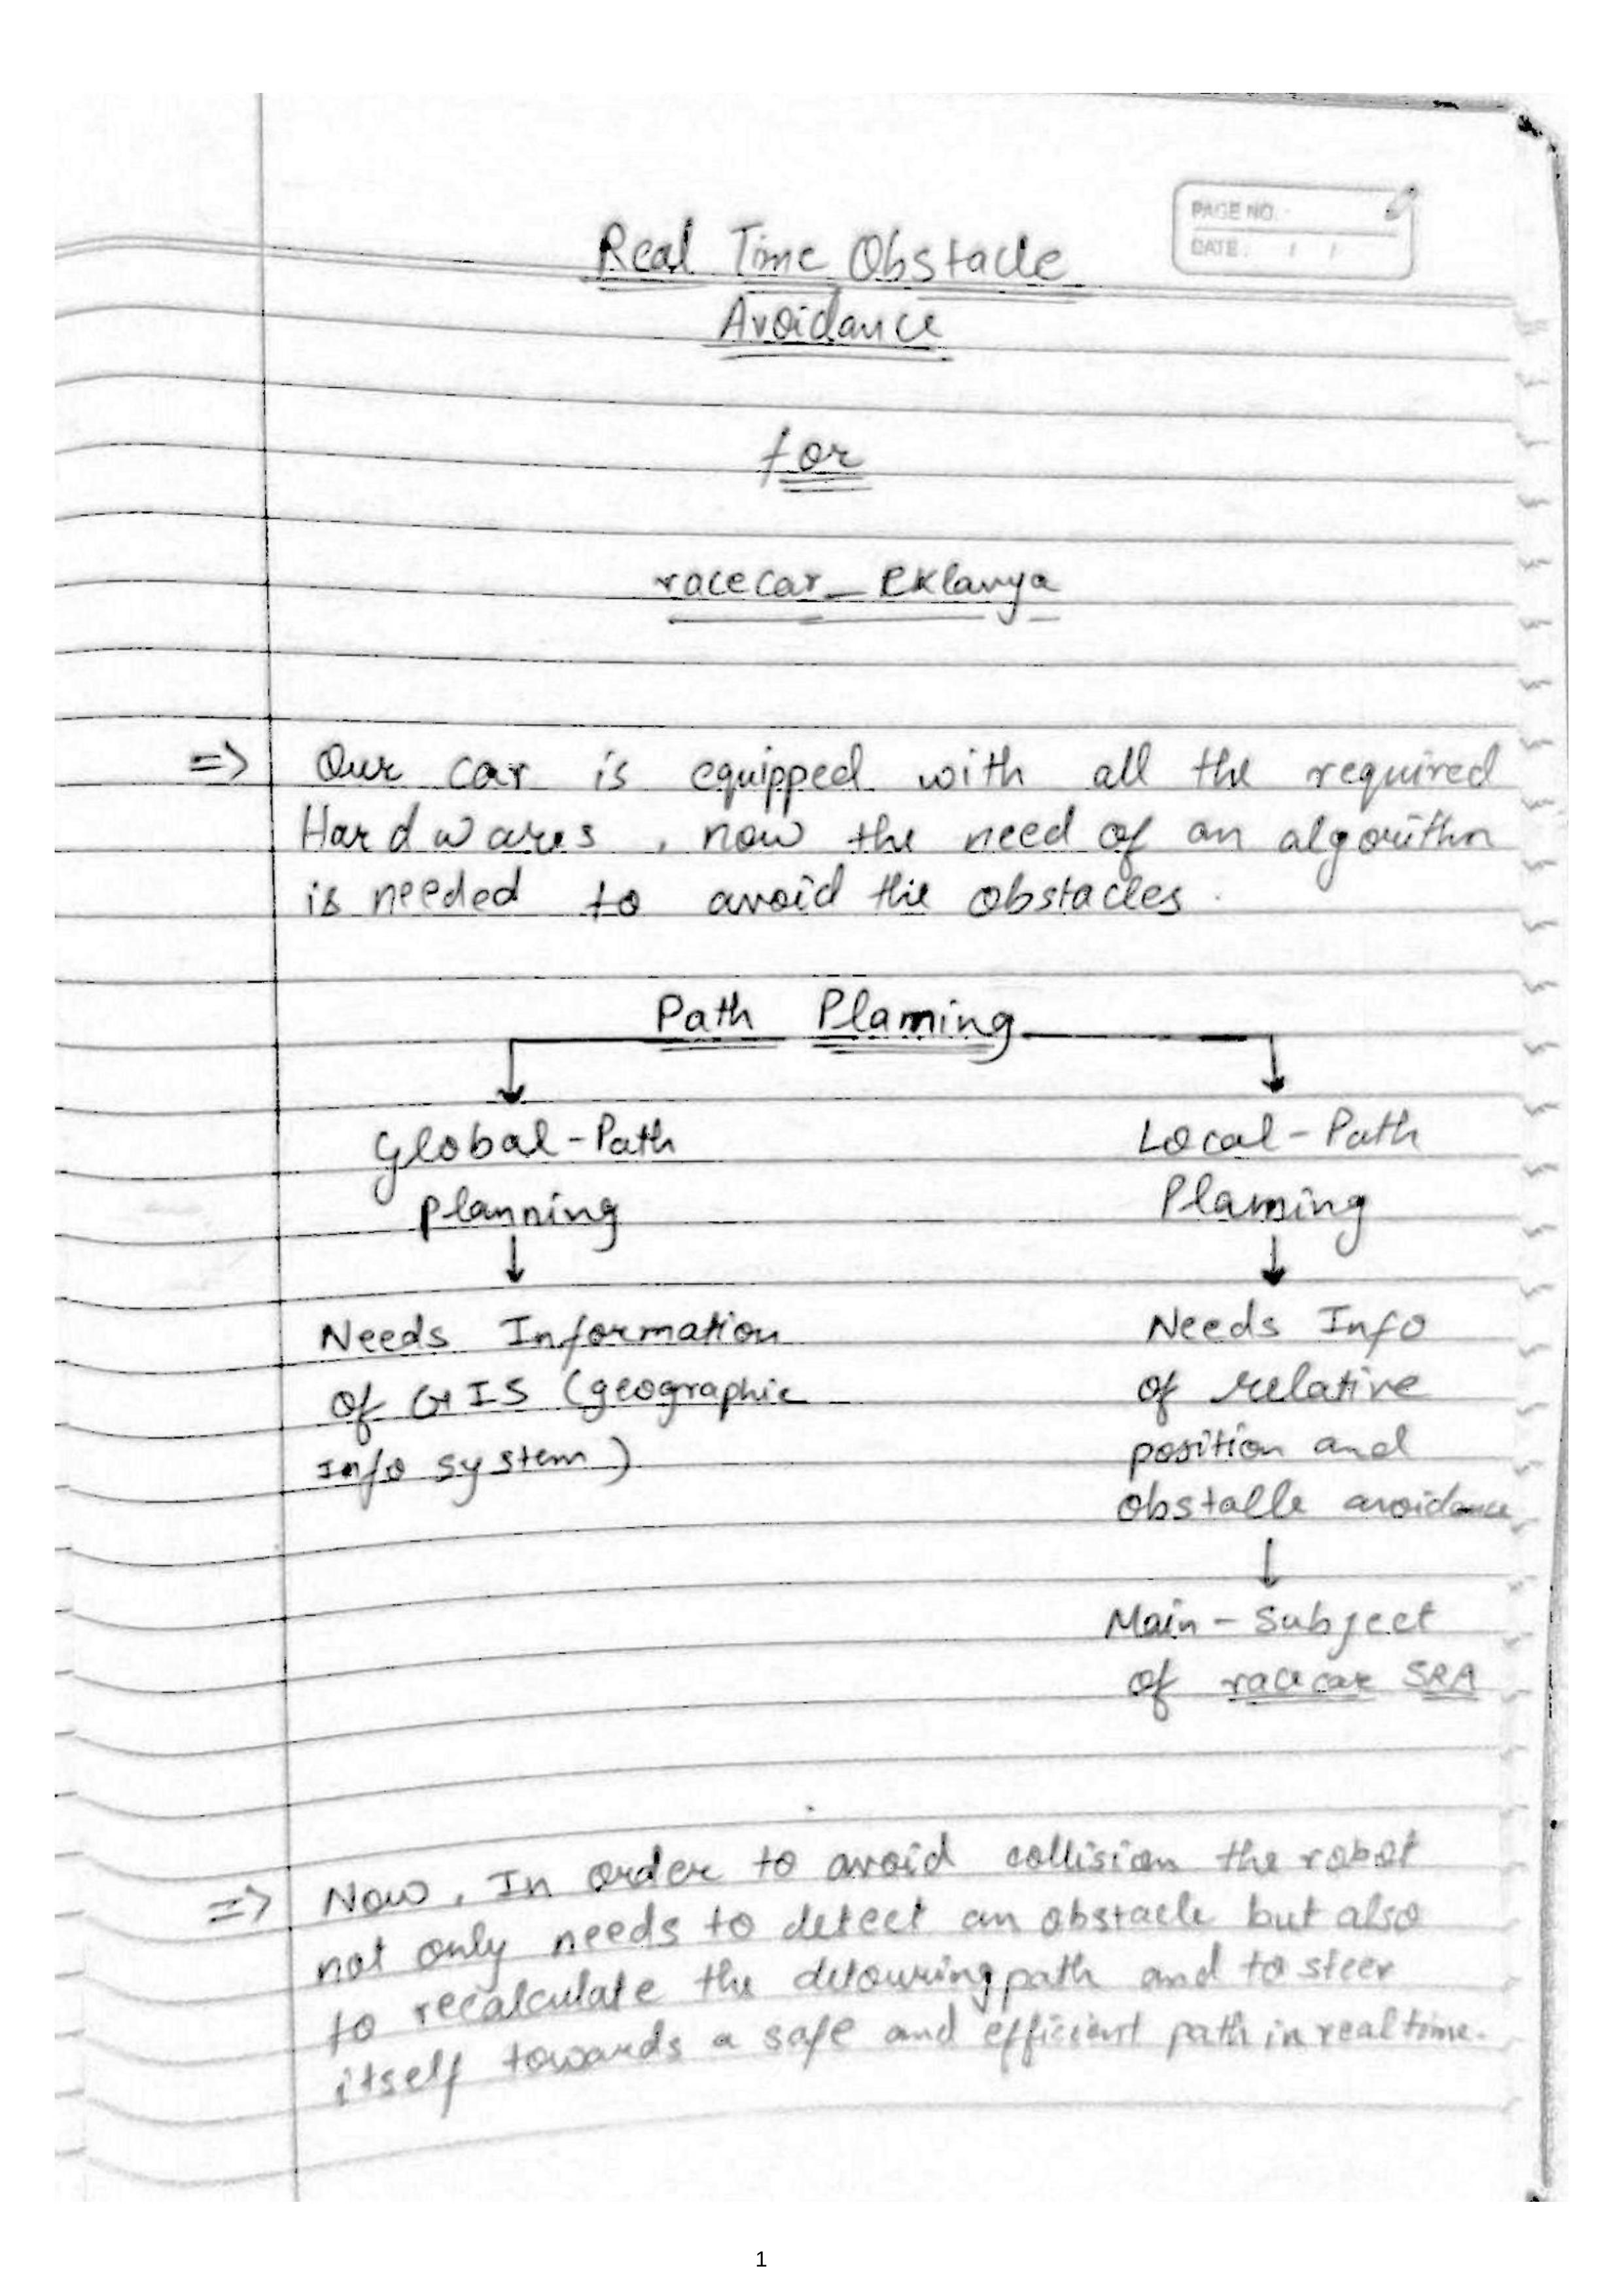 PAGE NO.
DATE: / /
Real Time Obstacle
Avoidance
for
racecar_Eklavya
=> Our car is equipped with all the required
Hardwares, now the need of an algorithm
is needed to avoid the obstacles.
Path Planning
Global-Path
planning
Needs Information
of GIS (geographic
Info system)
Local-Path
Planning
Needs Info
of relative
position and
obstacle avoidance
Main-Subject
of racecar SRA
=> Now, In order to avoid collision the robot
not only needs to detect an obstacle but also
to recalculate the detouring path and to steer
itself towards a safe and efficient path in real time.
1